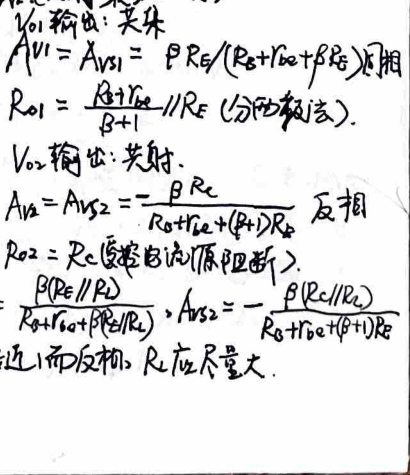 V01输出:共集
AV1 = AVS1 = βRE/(RB+rbe+βRE)同相
R01 = (RB+rbe)/(β+1) // RE (分两数法).
V02输出:共射.
AV2 = AVS2 = - βRc/(RB+rbe+(β+1)RE) 反相
R02 = Rc(受控电流源阻断).
= β(RE//RL)/(RB+rbe+β(RE//RL)), AVS2 = - β(Rc//RL)/(RB+rbe+(β+1)RE)
近1而反相, RL应尽量大.